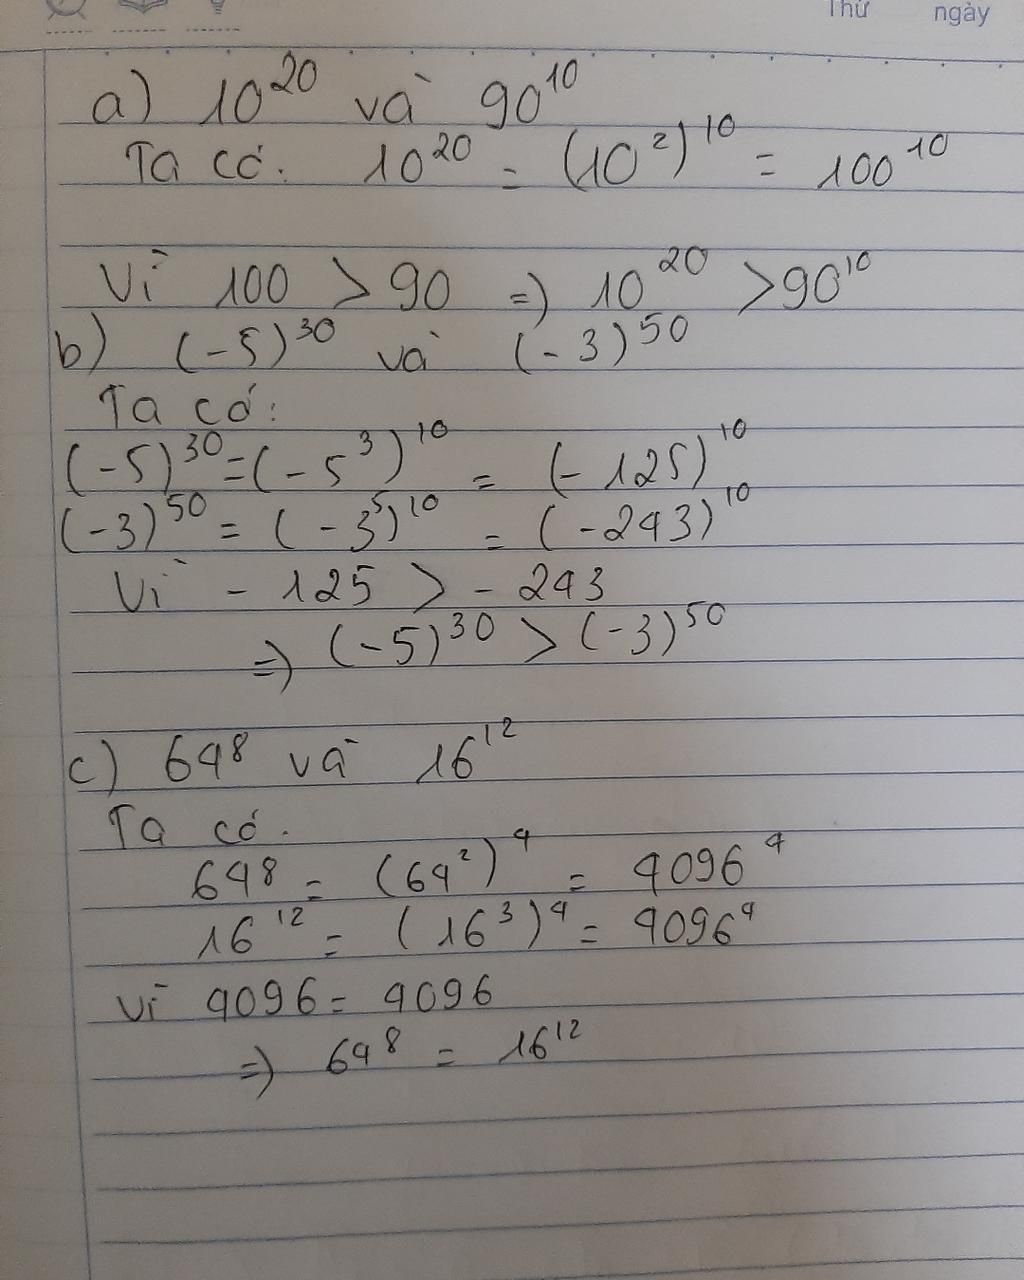 Thứ ngày
a) 10^20 và 90^10
Ta có. 10^20 = (10^2)^10 = 100^10
Vì 100 > 90 => 10^20 > 90^10
b) (-5)^30 và (-3)^50
Ta có:
(-5)^30 = (-5^3)^10 = (-125)^10
(-3)^50 = (-3^5)^10 = (-243)^10
Vì -125 > -243
=> (-5)^30 > (-3)^50
c) 64^8 và 16^12
Ta có.
64^8 = (64^2)^4 = 4096^4
16^12 = (16^3)^4 = 4096^4
Vì 4096 = 4096
=> 64^8 = 16^12